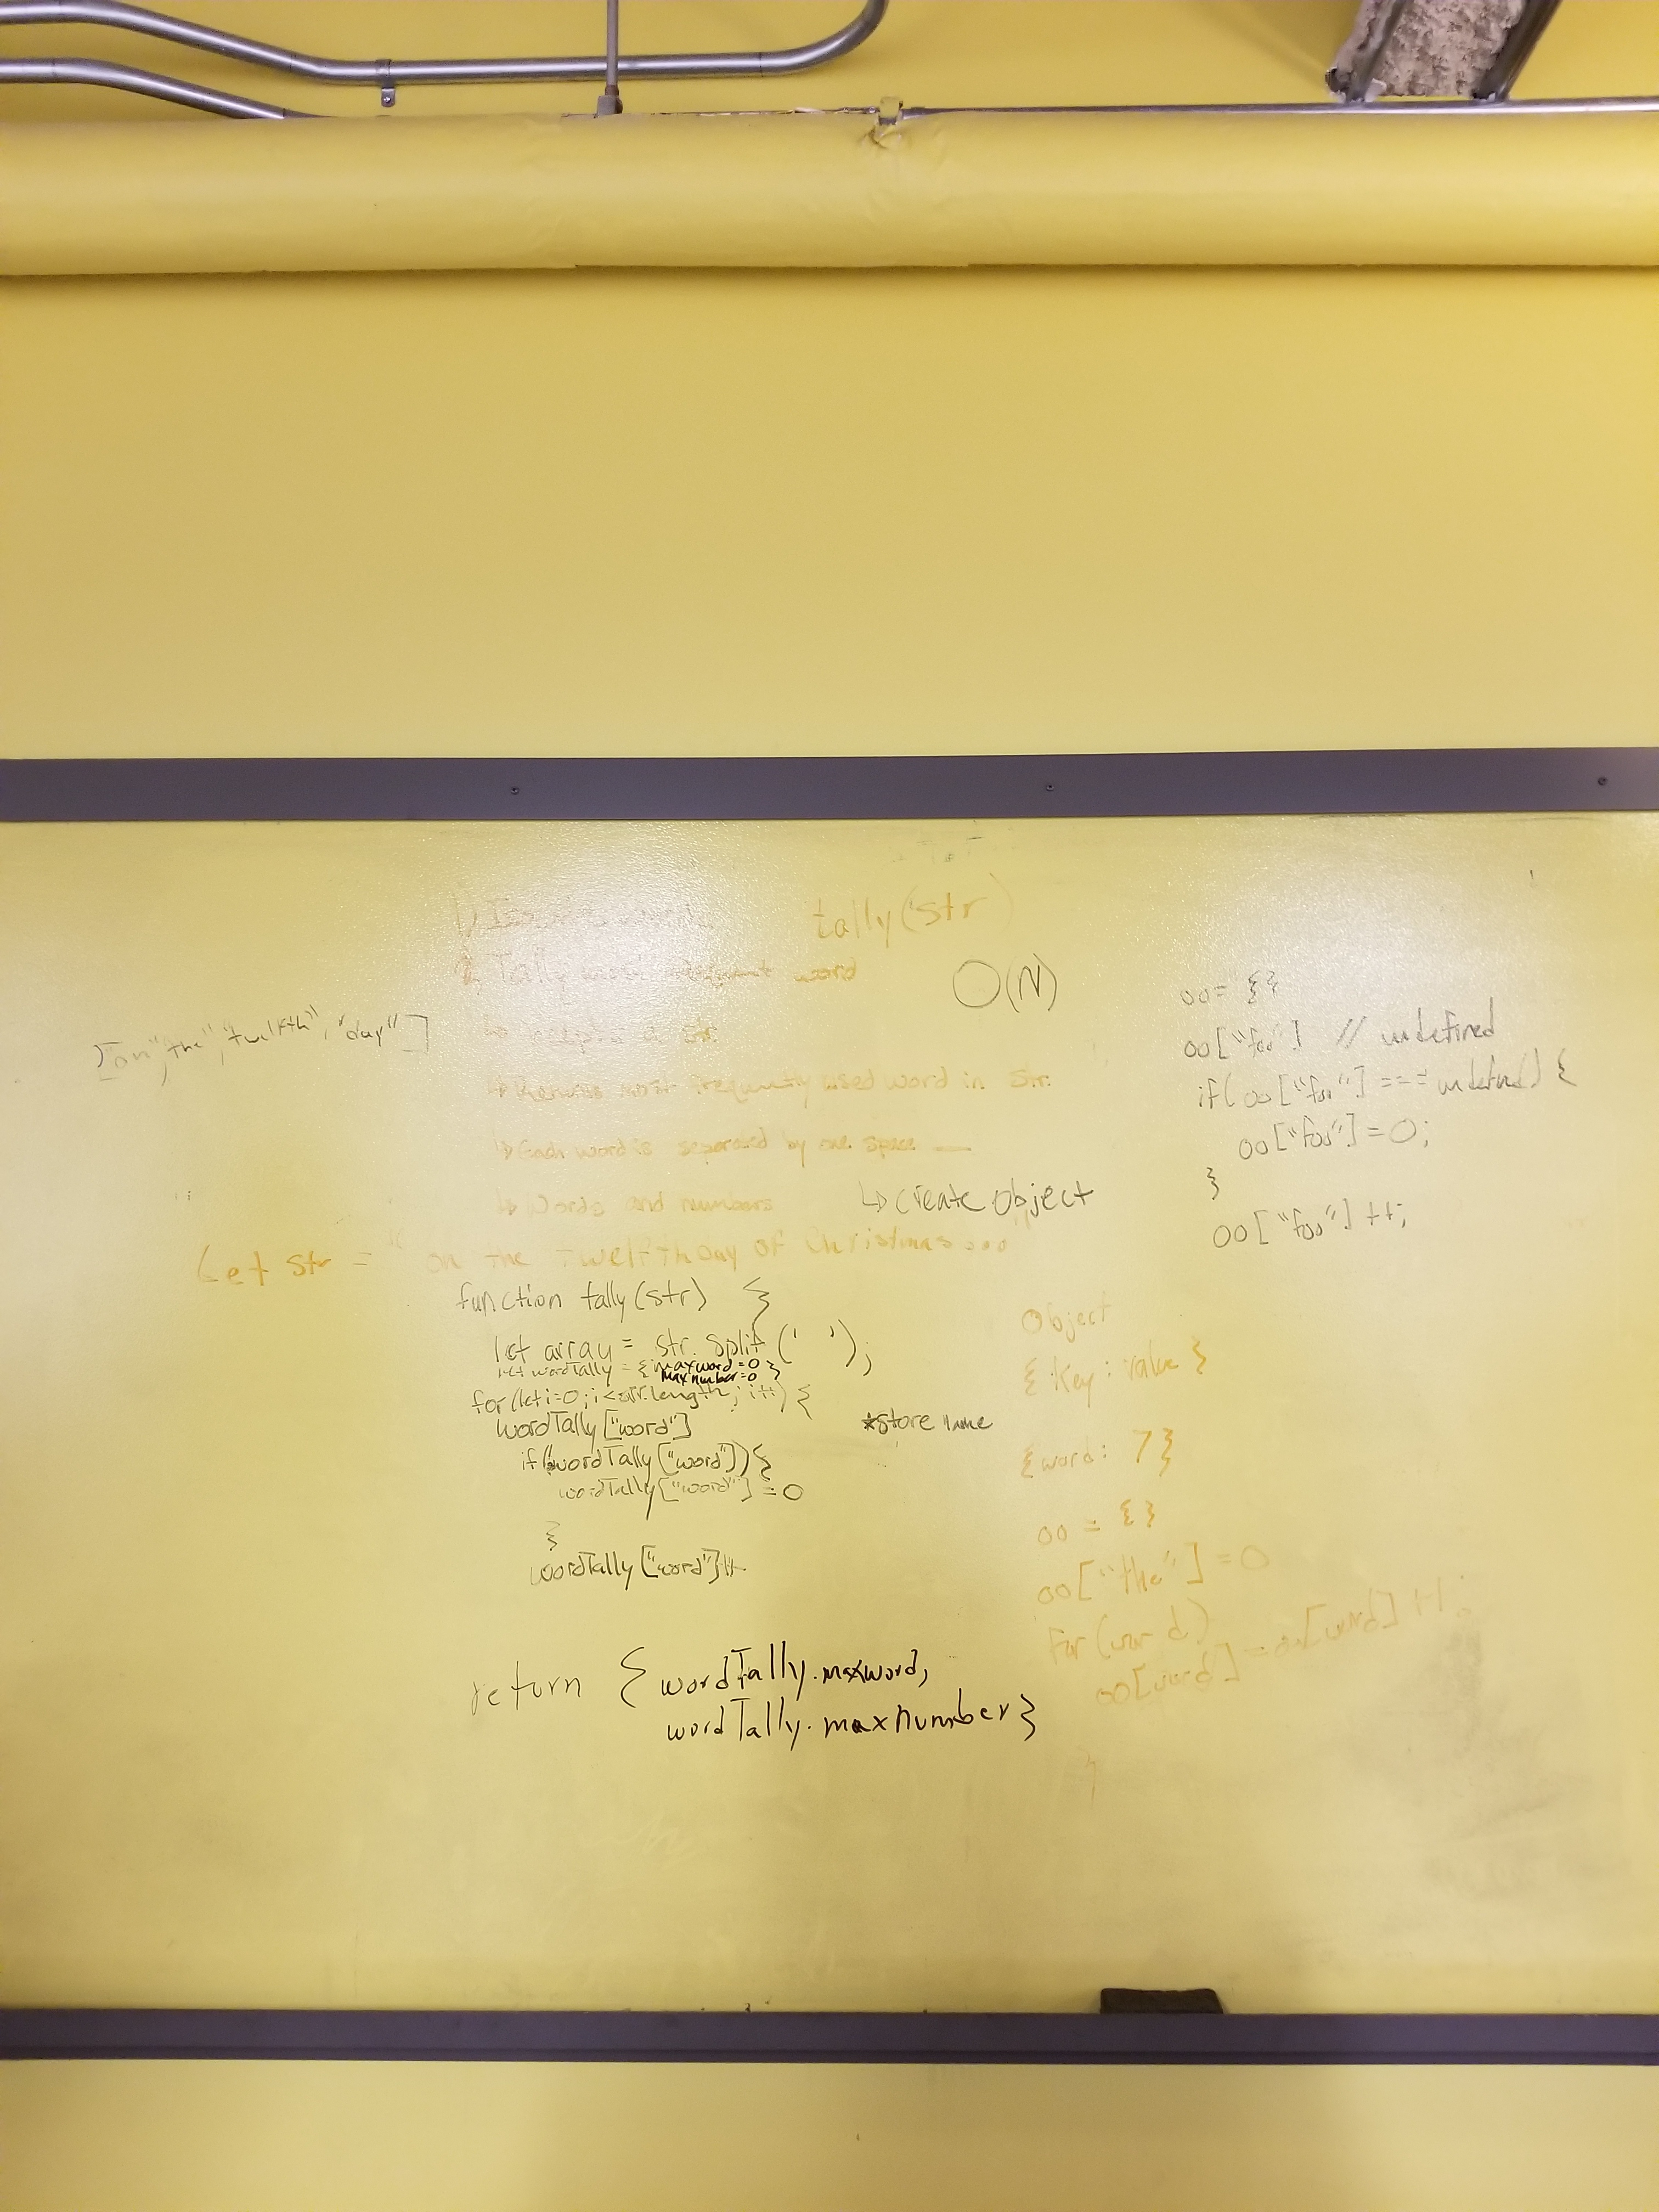 tally(str)
Tally most frequent word
O(N)
a str.
["on", "the", "twelfth", "day"]
↳ Returns most frequently used word in str.
↳ Each word is seperated by one space —
↳ Words and numbers
↳ create object
Let str = "on the twelfth Day of Christmas..."
function tally(str) {
let array = str.split(' ');
let wordTally = { maxword=0
maxnumber=0 }
for(let i=0; i<arr.length; i++) {
wordTally["word"]
if(!wordTally["word"]){
wordTally["word"] = 0
}
wordTally["word"]++
return { wordTally.maxword,
wordTally.maxnumber }
*store name
oo= {}
oo["foo"] // undefined
if( oo["foo"] === undefined) {
oo["foo"] = 0;
}
oo["foo"] ++;
Object
{ Key: value }
{word: 7}
oo = {}
oo["the"] = 0
For (word)
oo[word] = oo[word] +1;
}